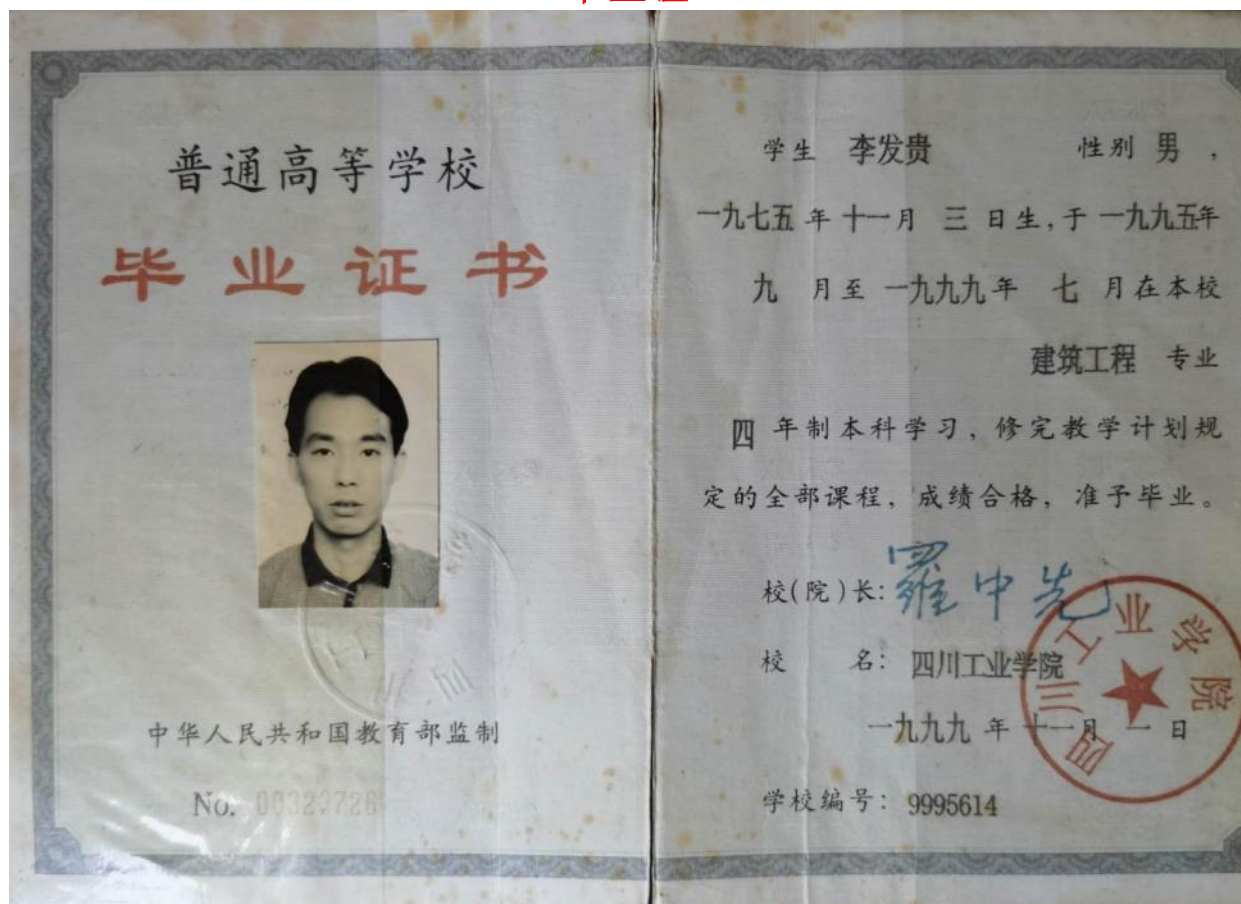 普通高等学校
毕业证书
中华人民共和国教育部监制
No. 00323726
学生 李发贵 性别 男 ,
一九七五 年 十一月 三 日生,于 一九九五年
九 月至 一九九九年 七 月在本校
建筑工程 专业
四 年制本科学习,修完教学计划规
定的全部课程,成绩合格,准予毕业。
校(院)长: 罗中先
校 名: 四川工业学院
一九九九 年 十一月 一 日
学校编号: 9995614
四川工业学院